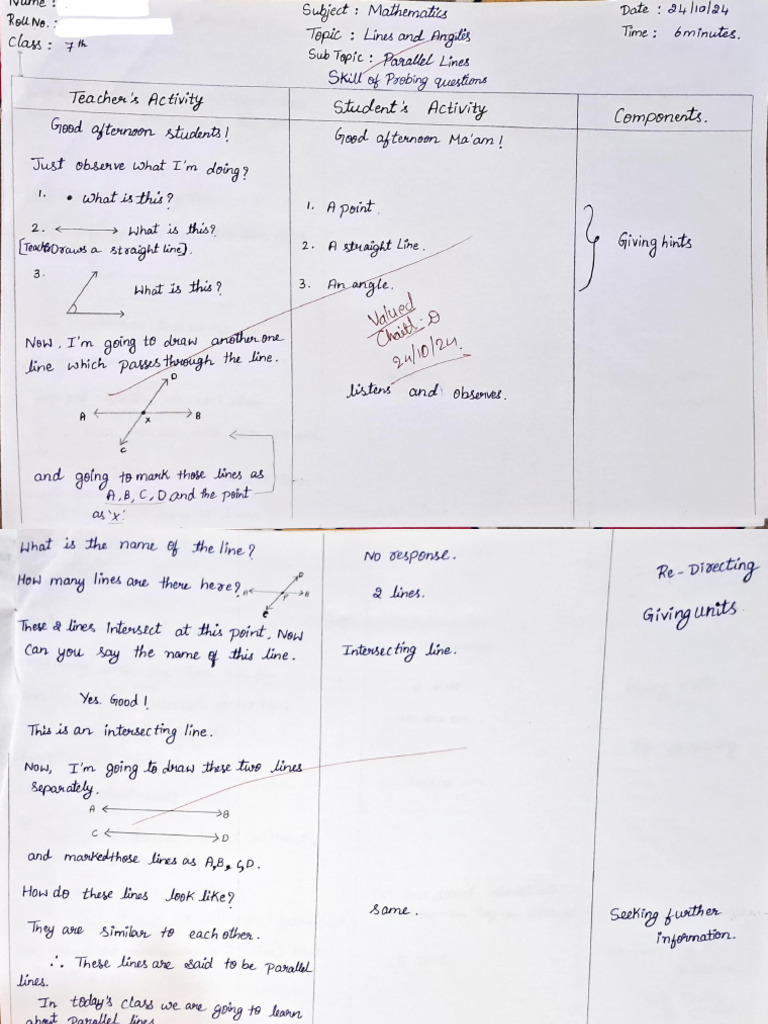 Name :
Roll No. :
Class : 7th
Subject : Mathematics
Topic : Lines and Angles
Sub Topic : Parallel Lines
Skill of Probing questions
Date : 24/10/24
Time : 6minutes.
Teacher's Activity
Student's Activity
Components.
Good afternoon students!
Good afternoon Ma'am!
Just observe what I'm doing?
1. • What is this?
1. A point.
2. What is this?
[Teacher Draws a straight line].
2. A straight Line.
Giving hints
3. What is this?
3. An angle.
Valued
24/10/24.
Now, I'm going to draw another one
line which passes through the line.
listens and observes.
D
A B
X
C
and going to mark those lines as
A, B, C, D and the point
as 'X'
What is the name of the line?
No response.
Re-Directing
How many lines are there here?
A B C D P
2 lines.
Giving units.
These 2 lines intersect at this point. Now
can you say the name of this line.
Intersecting line.
Yes. Good!
This is an intersecting line.
Now, I'm going to draw these two lines
separately.
A B
C D
and marked those lines as A, B, C, D.
How do these lines look like?
same.
Seeking further
information.
They are similar to each other.
∴ These lines are said to be parallel
lines.
In today's class we are going to learn
about parallel lines